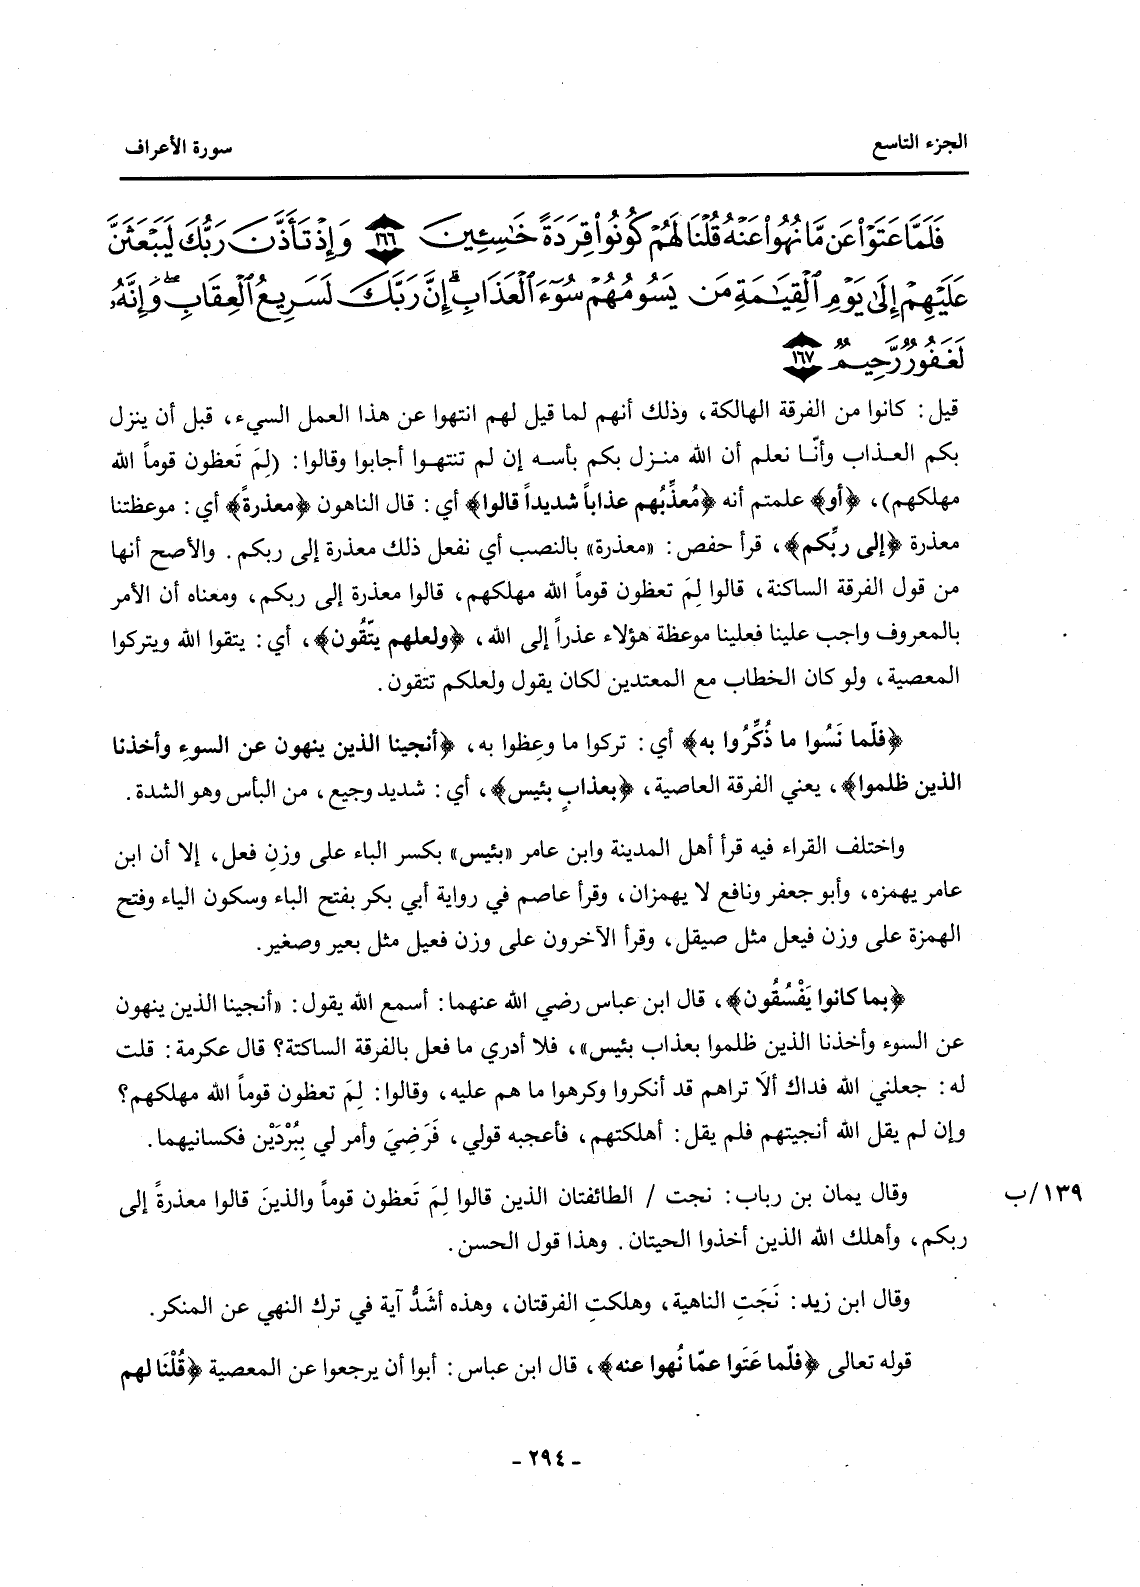 الجزء التاسع
سورة الأعراف
فَلَمَّا عَتَوْاْ عَن مَّا نُهُواْ عَنْهُ قُلْنَا لَهُمْ كُونُواْ قِرَدَةً خَٰسِـِٔينَ ﴿١٦٦﴾ وَإِذْ تَأَذَّنَ رَبُّكَ لَيَبْعَثَنَّ
عَلَيْهِمْ إِلَىٰ يَوْمِ ٱلْقِيَٰمَةِ مَن يَسُومُهُمْ سُوٓءَ ٱلْعَذَابِ ۗ إِنَّ رَبَّكَ لَسَرِيعُ ٱلْعِقَابِ ۖ وَإِنَّهُۥ
لَغَفُورٌ رَّحِيمٌ ﴿١٦٧﴾
قيل: كانوا من الفرقة الهالكة، وذلك أنهم لما قيل لهم انتهوا عن هذا العمل السيء، قبل أن ينزل
بكم العـذاب وأنّـا نعلم أن الله منـزل بكم بأسـه إن لم تنتهـوا أجابوا وقالوا: (لِمَ تَعظون قوماً الله
مهلكهم)، ﴿أو﴾ علمتم أنه ﴿مُعذِّبُهم عذاباً شديداً قالوا﴾ أي: قال الناهون ﴿معذرةً﴾ أي: موعظتنا
معذرة ﴿إلى ربِّكم﴾، قرأ حفص: «معذرة» بالنصب أي نفعل ذلك معذرة إلى ربكم. والأصح أنها
من قول الفرقة الساكنة، قالوا لِمَ تعظون قوماً الله مهلكهم، قالوا معذرة إلى ربكم، ومعناه أن الأمر
بالمعروف واجب علينا فعلينا موعظة هؤلاء عذراً إلى الله، ﴿ولعلهم يتّقُون﴾، أي: يتقوا الله ويتركوا
المعصية، ولو كان الخطاب مع المعتدين لكان يقول ولعلكم تتقون.
﴿فلّما نَسُوا ما ذُكِّرُوا به﴾ أي: تركوا ما وعِظوا به، ﴿أنجينا الذين ينهون عن السوءِ وأخذنا
الذين ظلموا﴾، يعني الفرقة العاصية، ﴿بعذابٍ بئيس﴾، أي: شديد وجيع، من البأس وهو الشدة.
واختلف القراء فيه قرأ أهل المدينة وابن عامر «بئيس» بكسر الباء على وزنِ فعل، إلا أن ابن
عامر يهمزه، وأبو جعفر ونافع لا يهمزان، وقرأ عاصم في رواية أبي بكر بفتح الباء وسكون الياء وفتح
الهمزة على وزن فيعل مثل صيقل، وقرأ الآخرون على وزن فعيل مثل بعير وصغير.
﴿بما كانوا يَفْسُقُون﴾، قال ابن عباس رضي الله عنهما: أسمع الله يقول: «أنجينا الذين ينهون
عن السوء وأخذنا الذين ظلموا بعذاب بئيس»، فلا أدري ما فعل بالفرقة الساكتة؟ قال عكرمة: قلت
له: جعلني الله فداك ألَا تراهم قد أنكروا وكرهوا ما هم عليه، وقالوا: لِمَ تعظون قوماً الله مهلكهم؟
وإن لم يقل الله أنجيتهم فلم يقل: أهلكتهم، فأعجبه قولي، فَرَضِيَ وأمر لي بِبُرْدَيْن فكسانيهما.
وقال يمان بن رباب: نجت / الطائفتان الذين قالوا لِمَ تَعظون قوماً والذينَ قالوا معذرةً إلى
١٣٩/ب
ربكم، وأهلك الله الذين أخذوا الحيتان. وهذا قول الحسن.
وقال ابن زيد: نَجَتِ الناهية، وهلكتِ الفرقتان، وهذه أشَدُّ آية في ترك النهي عن المنكر.
قوله تعالى ﴿فلّما عَتَوا عمّا نُهوا عنه﴾، قال ابن عباس: أبوا أن يرجعوا عن المعصية ﴿قُلْنَا لهم
- ٢٩٤ -